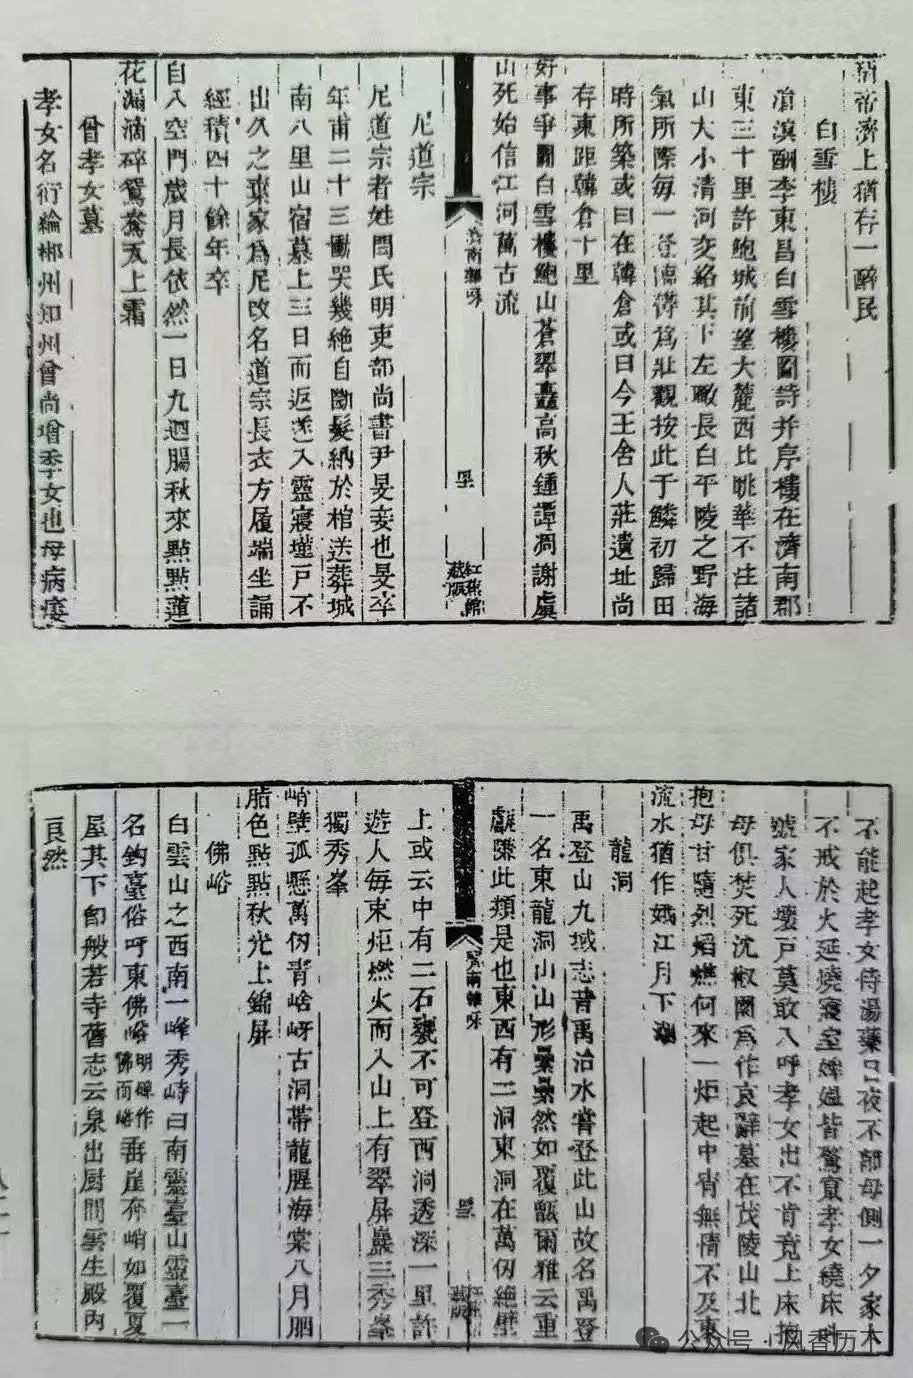 帝濟上猶存一醉民
白雪樓
滄溟酬李東昌白雪樓圖詩并序樓在濟南郡
東三十里許鮑城前望大麓西北眺華不注諸
山大小清河交絡其下左瞰長白平陵之野海
氣所際每一登臨得爲壯觀按此于鱗初歸田
時所築或曰在韓倉或曰今王舍人莊遺址尚
存東距韓倉十里
好事爭圖白雪樓鮑山蒼翠矗高秋鍾譚凋謝虞
山死始信江河萬古流
濟南雜咏
紅蕉館
藏版
尼道宗
尼道宗者姓閆氏明吏部尚書尹旻妾也旻卒
年甫二十三慟哭幾絕自斷髮納於棺送葬城
南八里山宿墓上三日而返遂入靈寢墐戸不
出久之棄家爲尼改名道宗長衣方履端坐誦
經積四十餘年卒
自入空門歲月長依然一日九迴腸秋來點點蓮
花漏滴碎鴛鴦瓦上霜
曾孝女墓
孝女名衍綸郴州知州曾尚增季女也母病痿
不能起孝女侍湯藥日夜不離母側一夕家人
不戒於火延燒寢室婢媼皆驚竄孝女繞床呌
號家人壞戸莫敢入呼孝女出不肯竟上床抱
母俱焚死沈椒園爲作哀辭墓在茂陵山北
抱母甘隨烈焰燃何來一炬起中宵無情不及東
流水猶作娥江月下潮
龍洞
禹登山九域志昔禹治水嘗登此山故名禹登
一名東龍洞山山形纍纍然如覆甑爾雅云重
甗隒此類是也東西有二洞東洞在萬仞絕壁
濟南雜咏
紅蕉館
藏版
上或云中有二石甕不可登西洞透深一里許
遊人每束炬燃火而入山上有翠屏巖三秀峯
獨秀峯
峭壁孤懸萬仞青㟏岈古洞帶龍腥海棠八月胭
脂色點點秋光上錦屏
佛峪
白雲山之西南一峰秀峙曰南靈臺山靈臺一
名釣臺俗呼東佛峪明碑作佛而峪垂崖奔峭如覆夏
屋其下卽般若寺舊志云泉出厨間雲生殿內
良然
公众号·风香历下